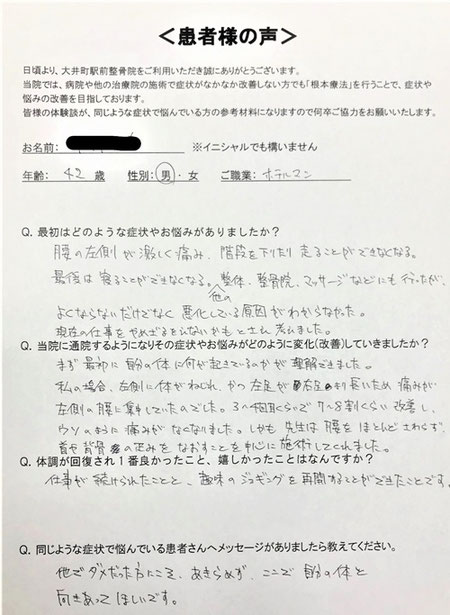 ＜患者様の声＞
日頃より、大井町駅前整骨院をご利用いただき誠にありがとうございます。
当院では、病院や他の治療院の施術で症状がなかなか改善しない方でも「根本療法」を行うことで、症状や
悩みの改善を目指しております。
皆様の体験談が、同じような症状で悩んでいる方の参考材料になりますので何卒ご協力をお願いします。
お名前: ※イニシャルでも構いません
年齢: 42 歳 性別: 男・女 ご職業: ホテルマン
Q. 最初はどのような症状やお悩みがありましたか?
腰の左側が激しく痛み、階段を下りたり走ることができなくなる。
最後は寝ることができなくなる。整体、整骨院、マッサージなどにも行ったが、
他の
よくならないだけでなく悪化している原因がわからなかった。
現在の仕事をやめざるをえないかもとさえ考えました。
Q. 当院に通院するようになりその症状やお悩みがどのように変化(改善)していきましたか?
まず最初に自分の体に何が起きているのかが理解できました。
私の場合、左側に体がねじれ、かつ左足が右足より長いため痛みが
左側の腰に集中していたのでした。3ヶ月くらいで7〜8割くらい改善し、
ウソのように痛みがなくなりました。しかも先生は腰をほとんどさわらず、
首や背骨の歪みをなおすことを中心に施術してくれました。
Q. 体調が回復され1番良かったこと、嬉しかったことはなんですか?
仕事が続けられたことと、趣味のジョギングを再開することができたことです。
Q. 同じような症状で悩んでいる患者さんへメッセージがありましたら教えてください。
他でダメだった方にこそ、あきらめず、ここで自分の体と
向きあってほしいです。